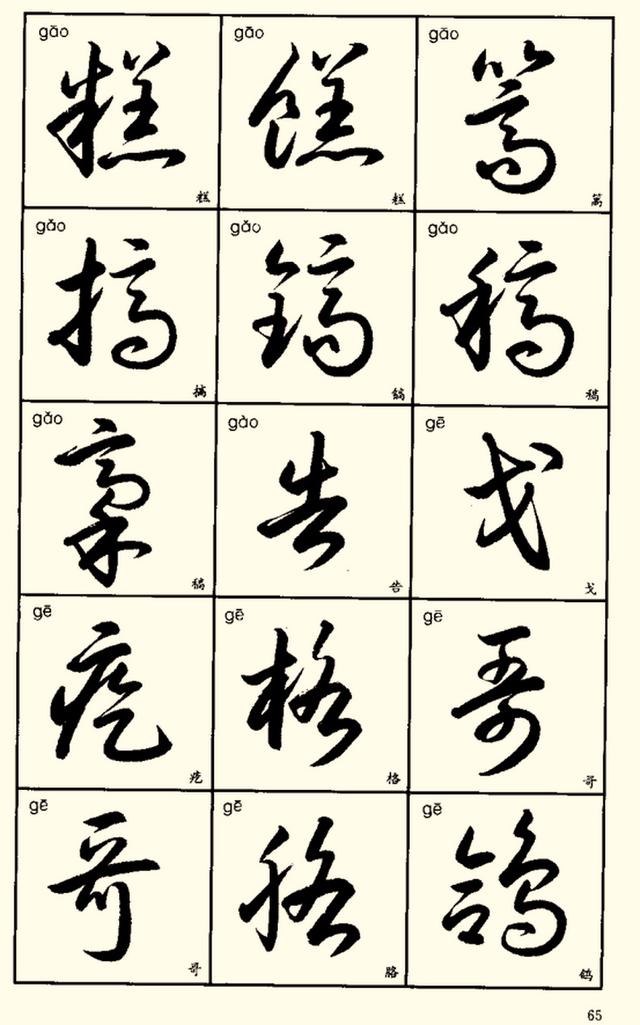 gāo gāo gāo
糕 糕 篙
gǎo gǎo gǎo
搞 镐 稿
gǎo gào gē
稿 告 戈
gē gē gē
疙 格 哥
gē gē gē
哥 胳 鸽
65